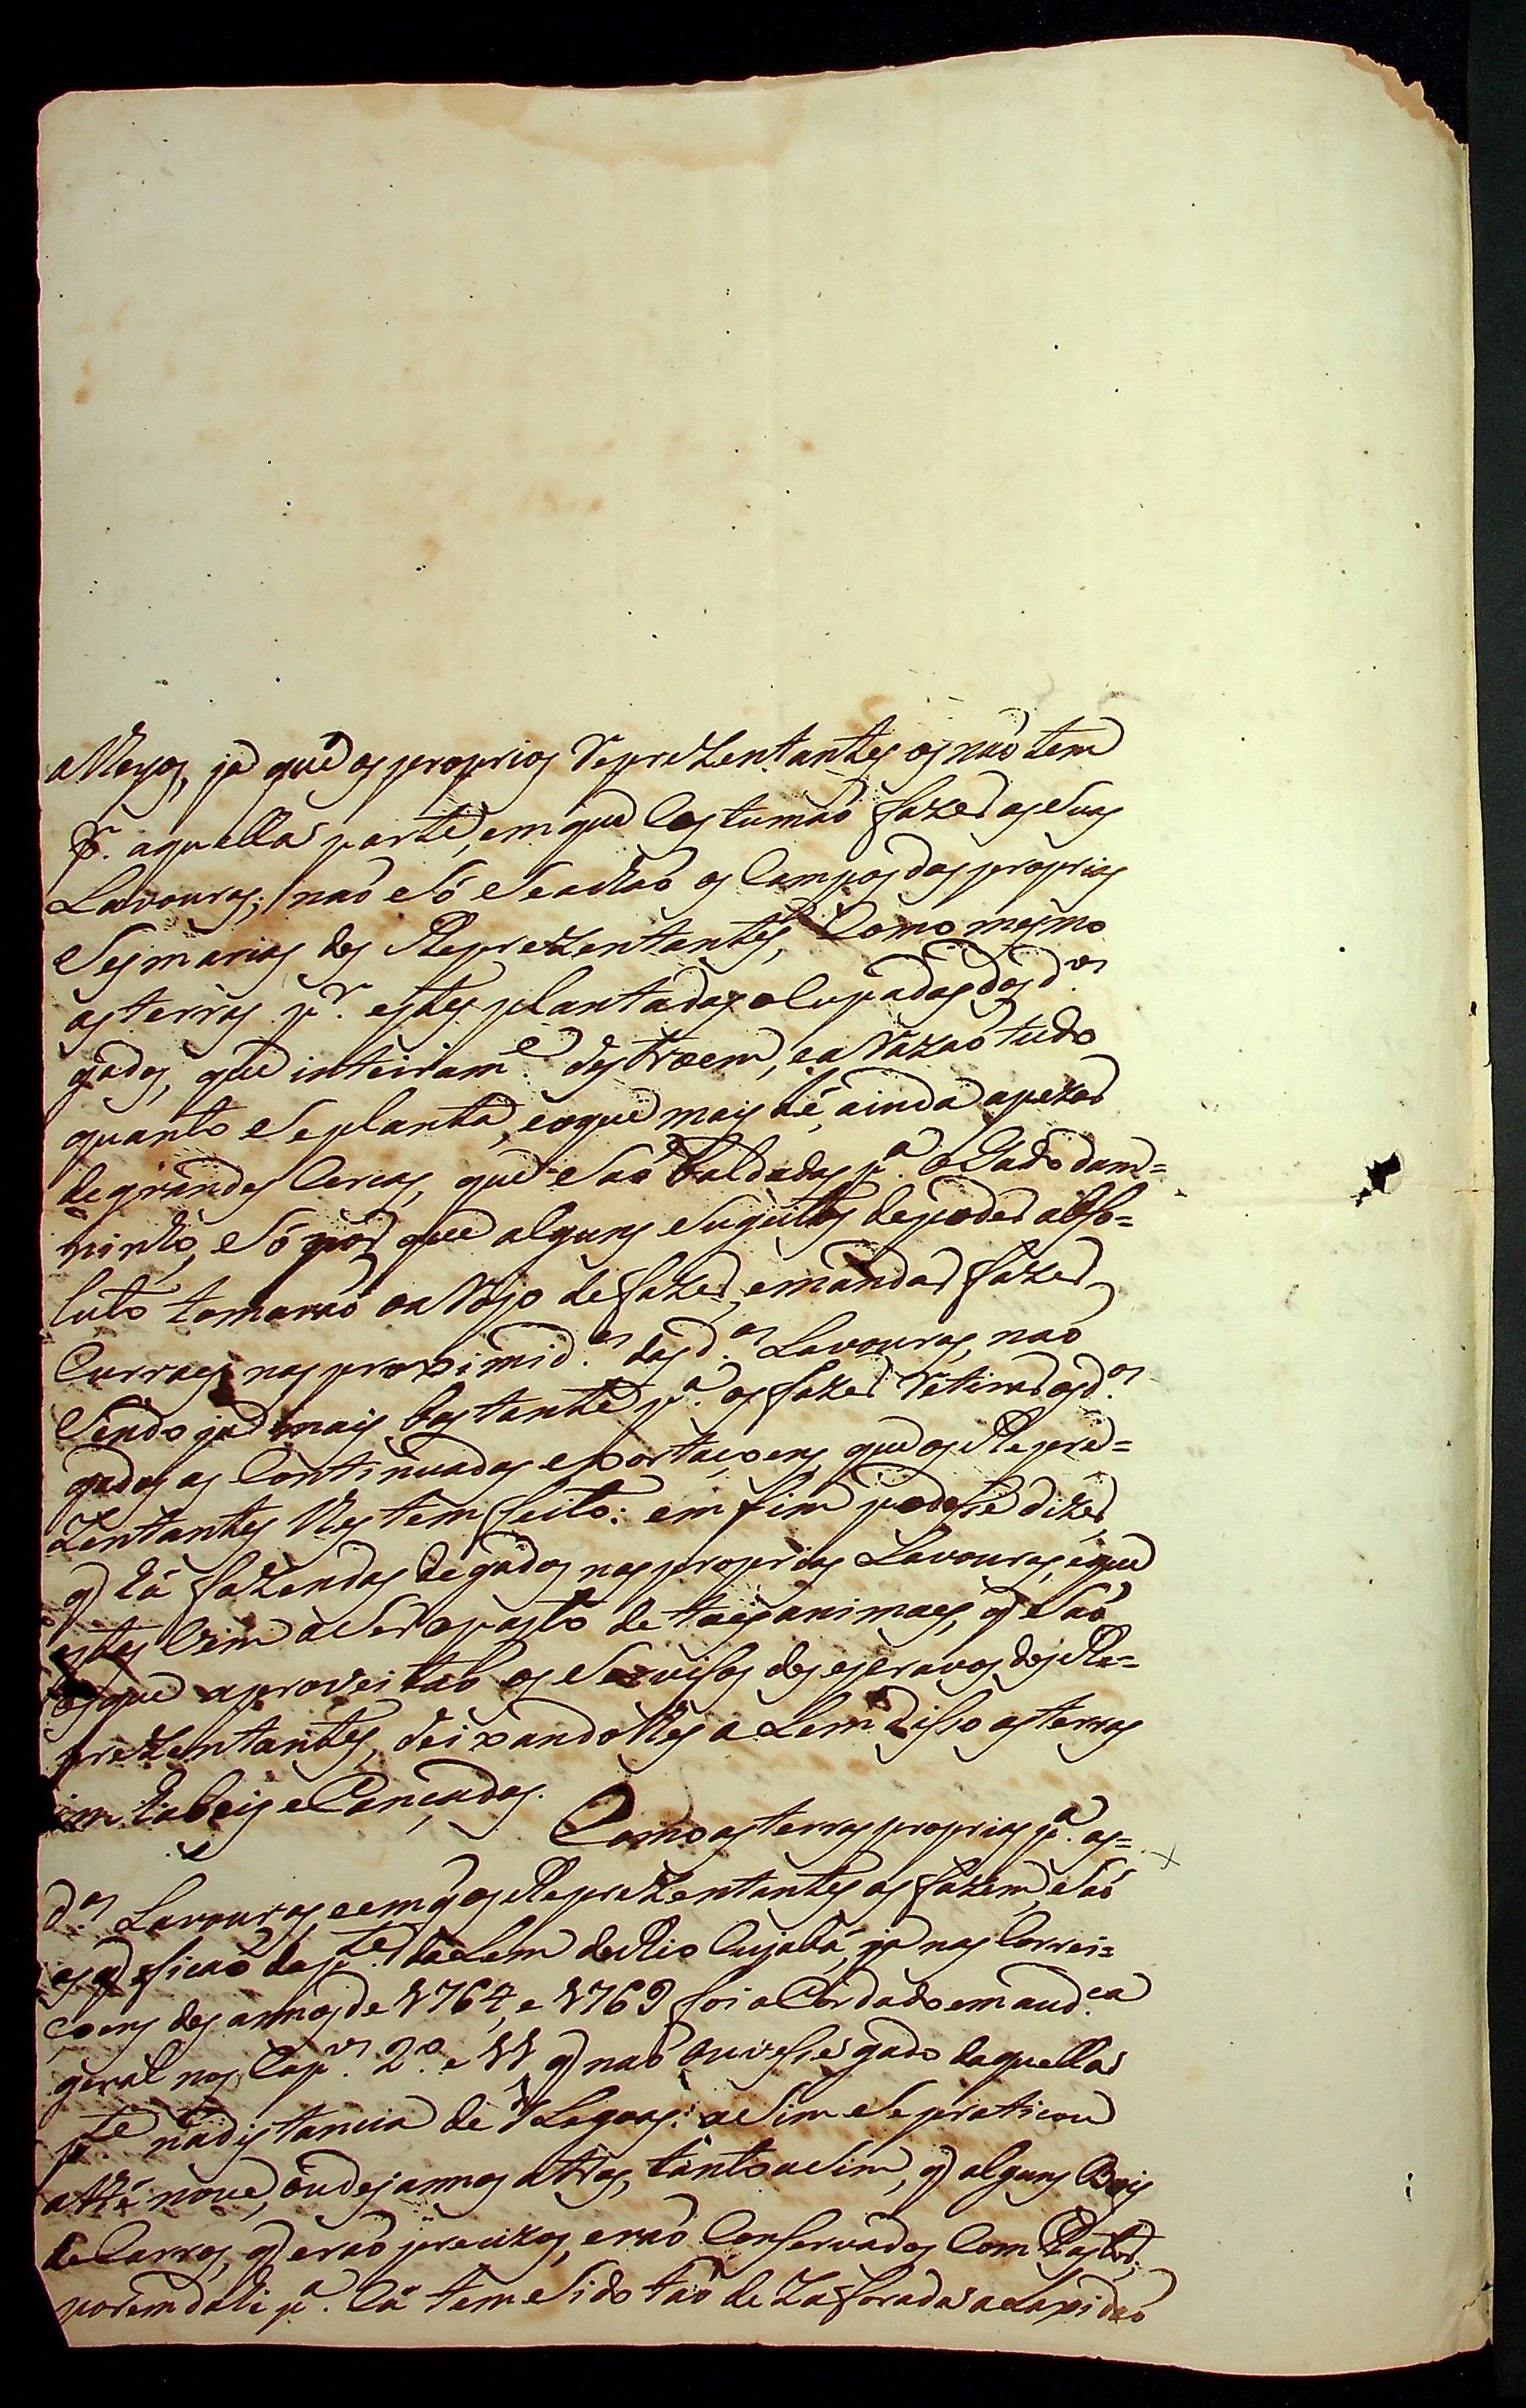 alheyos, já que os proprios Reprezentantes os naõ tem
pr. aquella parte, em que Costumaõ fazer as suas
Lavouras; naõ Só Se achaõ os Campos das proprias
Sesmarias dos Reprezentantes, Como mesmo
as terras pr. estes plantadas ocupadas dos d.os
gados, que inteiram.e destroem, e aRazaõ tudo
quanto Se planta, e o que mais hé, ainda apezar
de grandes Cercas, que Saõ baldadas p.a o Gado dam=
ninho, Só por que alguns Sugeitos de poder abso=
luto tomaraõ o aRojo de fazer, e mandar fazer
Curraes nas proximid.es das d.as Lavouras, naõ
Sendo já mais bastante p.a os fazer Retirar os d.os
gados as Continuadas exortaçoens, que os Repre=
Zentantes lhes tem feito: em fim podese dizer,
q há fazendas de gados nas proprias Lavouras, e que
estas Vem a Ser o pasto de taes animaes, q Saõ
os que aproveitaõ os Servisos dos escravos dos Re=
prezentantes, deixandolhes alem disso as terras
inhabeis e Cançadas.
Como as terras proprias p.a as=
d.as Lavouras, e em q os Reprezentantes as fazem, Saõ
as q ficaõ da p.te dalem do Rio Cuyabá, já nas Correi=
çoens dos annos de 1764, e 1769 foi aCordado em aud.ca
geral nos Cap.os 2.o e 11 q naõ ouvesse gado daquella
p.te na distancia de Legoas: asim Se praticou
athé nove, ou des annos atras, tanto asim, q alguns Bois
de Carros, q eraõ precizos, eraõ Conservados Com Pastor;
porem dali p.a Cá tem Sido taõ deZaforada a Laxidaõ